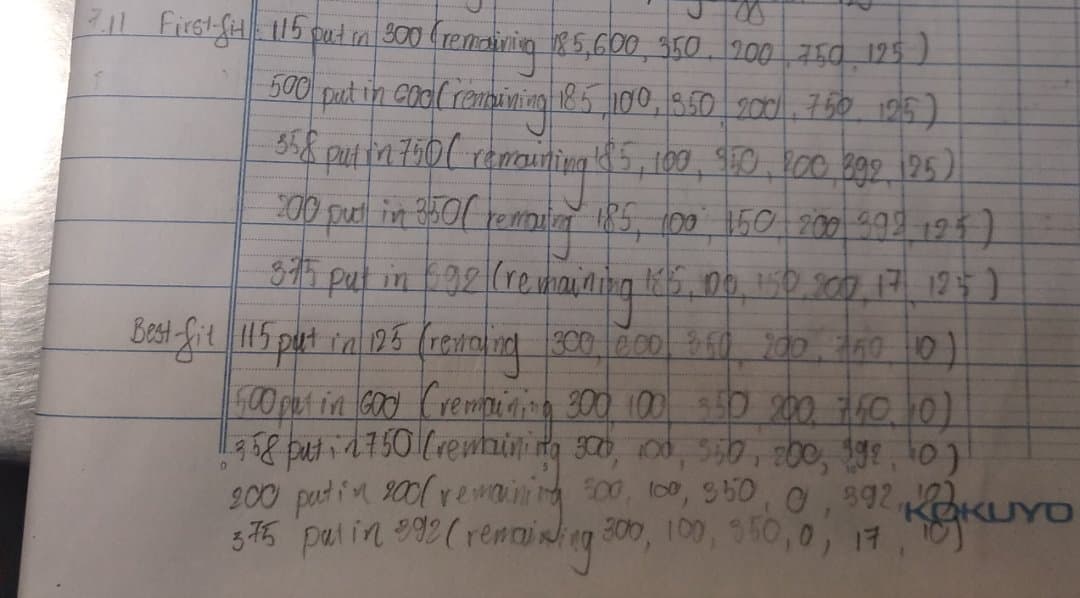 7.11 First-fit: 115 put in 300 (remaining 185, 600, 350, 200, 750, 125)
500 put in 600 (remaining 185, 100, 350, 200, 750, 125)
358 put in 750 (remaining 185, 100, 350, 200, 392, 125)
200 put in 350 (remaing 185, 100, 150, 200, 392, 125)
375 put in 392 (remaining 185, 100, 150, 200, 17, 125)
Best-fit 115 put in 125 (remaing 300, 600, 350, 200, 750, 10)
500 put in 600 (remaining 300, 100, 350, 200, 750, 10)
358 put in 750 (remaining 300, 100, 350, 200, 392, 10)
200 put in 200 (remaining 300, 100, 350, 0, 392, 10)
KOKUYO
375 put in 392 (remaining 300, 100, 350, 0, 17, 10)